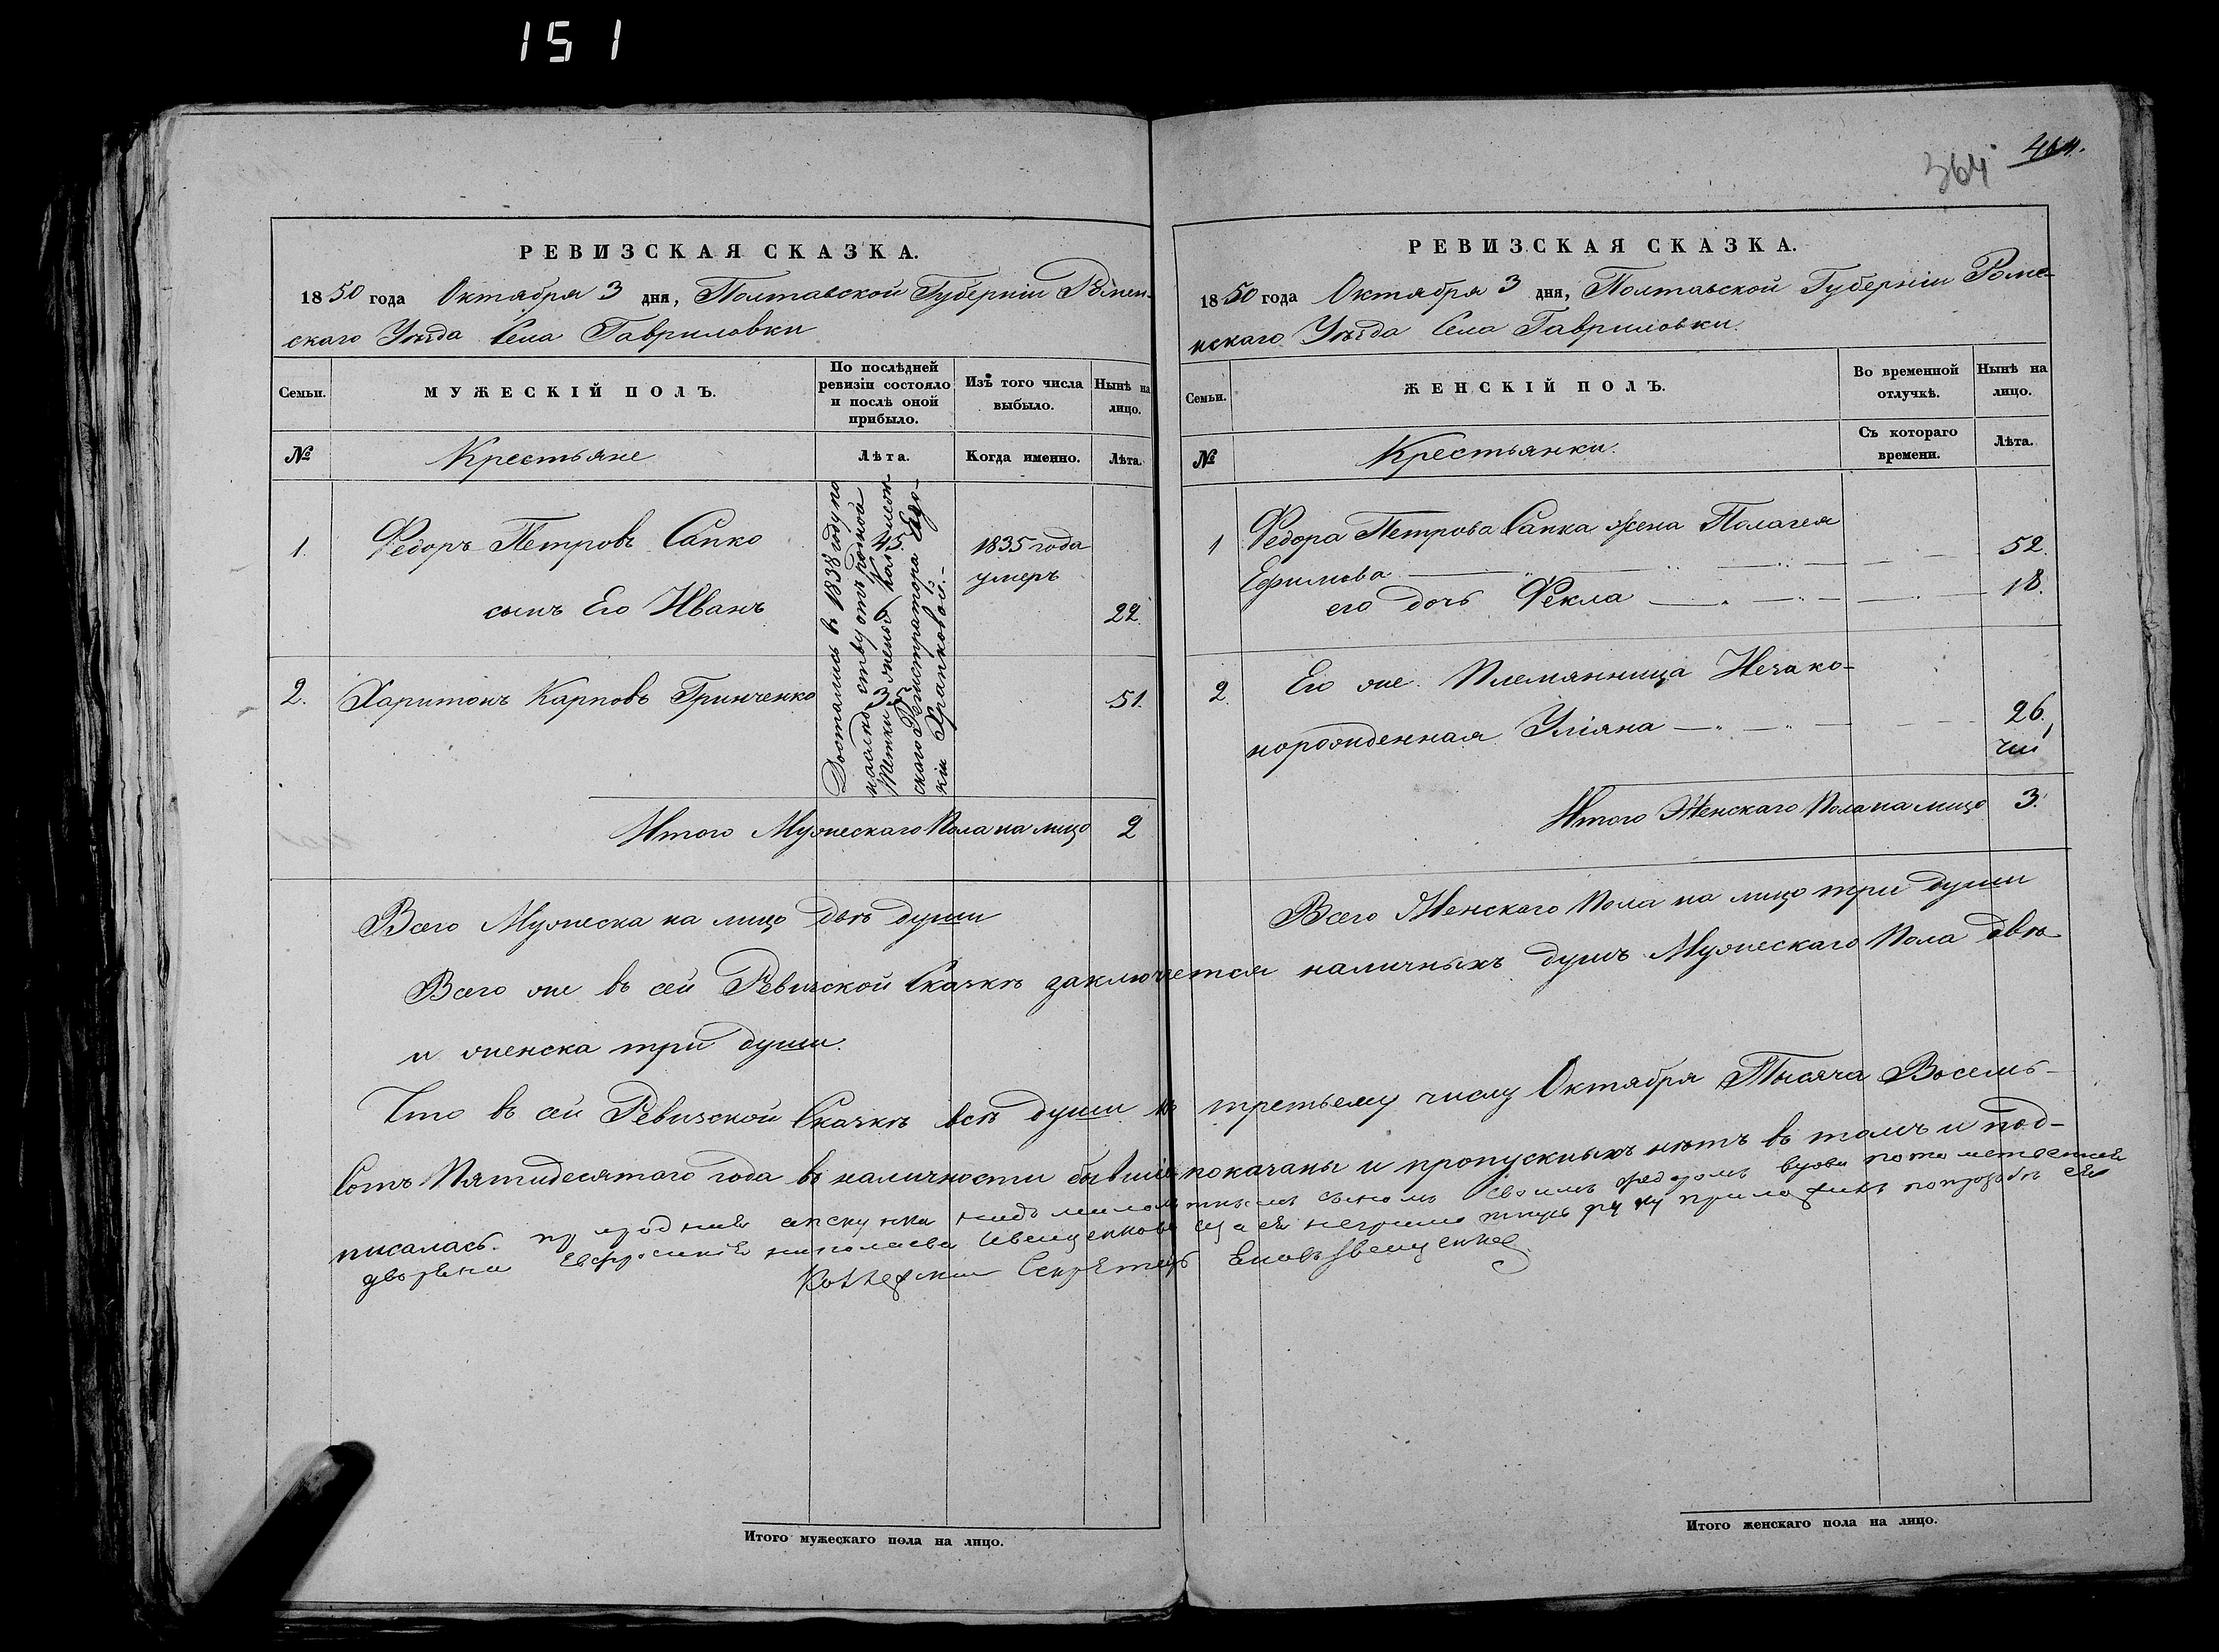 151
364
464.
РЕВИЗСКАЯ СКАЗКА.
1850 года Октября 3 дня, Полтавской Губерніи Ромен-
скаго Уѣзда Села Гавриловки
Семьи.
МУЖЕСКІЙ ПОЛЪ.
По послѣдней ревизіи состояло и послѣ оной прибыло.
Изъ того числа выбыло.
Нынѣ на лицо.
№
Крестьяне
Лѣта.
Когда именно.
Лѣта.
1. Федоръ Петровъ Сапко 45 1835 года
умеръ
сынъ Его Иванъ 22.
2. Харитонъ Карповъ Гринченко 35 51.
Достались въ 1838 году по
отъ родной
Тетки жены
скаго Регистратора Евдо-
кіи Храпковой.-
Итого Мужескаго Пола на лицо 2
Всего Мужеска на лицо двѣ души
РЕВИЗСКАЯ СКАЗКА.
1850 года Октября 3 дня, Полтавской Губерніи Роме-
нскаго Уѣзда Села Гавриловки.
Семьи.
ЖЕНСКІЙ ПОЛЪ.
Во временной отлучкѣ.
Нынѣ на лицо.
№
Крестьянки.
Съ котораго времени.
Лѣта.
1 Федора Петрова Сапка жена Палагея
Ефимова 52.
его дочь Фекла 18.
2. Его же Племянница Незако-
норожденная Уліяна 26.
Итого Женскаго Пола на лицо 3.
Всего Женскаго Пола на лицо три души
Всего же въ сей Ревизской Сказкѣ заключается наличныхъ душъ Мужескаго Пола двѣ
и женска три души.
Что въ сей Ревизской Сказкѣ всѣ души къ третьему числу Октября Тысяча Восемь-
Сотъ Пятидесятаго года въ наличности бывшія показаны и пропускныхъ нѣтъ въ томъ и под-
писалась.
сыномъ своимъ вдова
николаева руку
Секретарь
Итого мужескаго пола на лицо.
Итого женскаго пола на лицо.